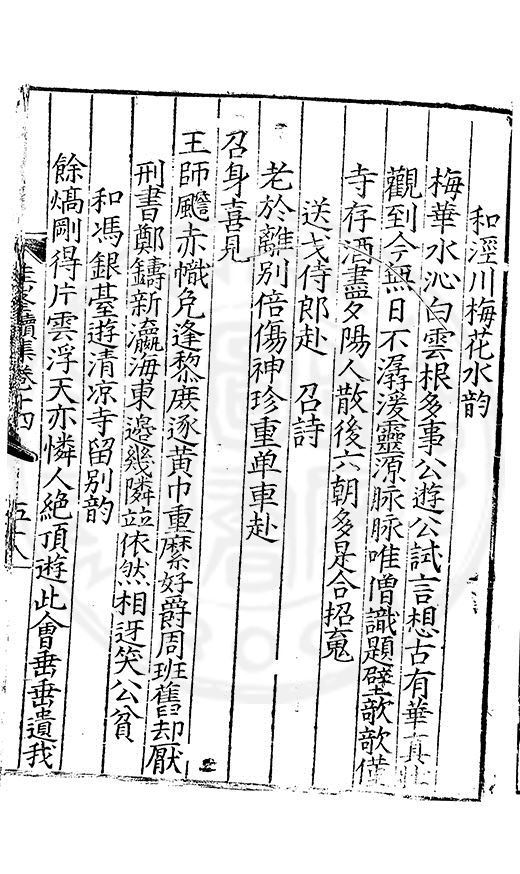 和涇川梅花水韵
梅華水沁白雲根多事公遊公試言想古有華真此
觀到今無日不潺湲靈源脉脉唯僧識題壁僅
寺存酒盡夕陽人散後六朝多是合招䰟
送戈侍郎赴　召詩
老於離別倍傷神珍重单車赴
召身喜見
王師颺赤幟免逢黎庶逐黃巾重縻好爵周班舊却厭
刑書鄭鑄新瀛海東邉幾隣竝依然相迓笑公貧
和馮銀臺遊清凉寺留別韵
餘熇剛得片雲浮天亦憐人絶頂遊此會垂垂遺我
續集卷十四